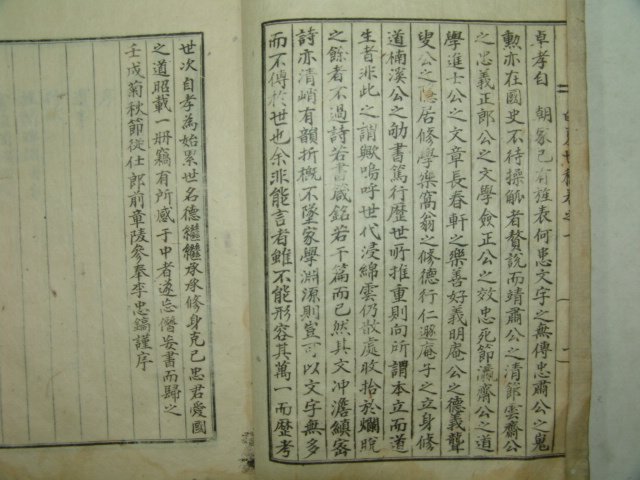 卓孝自 朝家已有旌表何患文字之無傳忠肅公之鬼
勳亦在國史不待操觚者贅說而靖肅公之清節雲齋公
之忠義正郎公之文學僉正公之效忠死節濡齋公之道
學進士公之文章長春軒之樂善好義明庵公之德義聾
叟公之隱居修學樂窩翁之修德行仁遯庵子之立身修
道楠溪公之劬書篤行歷世所推重則向所謂本立而道
生者非此之謂歟嗚呼世代浸綿雲仍散處收拾於爛脫
之餘者不過詩若書箴銘若干篇而已然其文冲澹縝密
詩亦清峭有韻折槪不墜家學淵源則豈可以文字無多
而不傳於世也余非能言者雖不能形容其萬一而歷考
世次自孝為始累世名德繼繼承承修身克己忠君愛國
之道昭載一冊竊有所感于中者遂忘僭妄書而歸之
壬戌菊秋節從仕郎前章陵參奉李忠鎬謹序